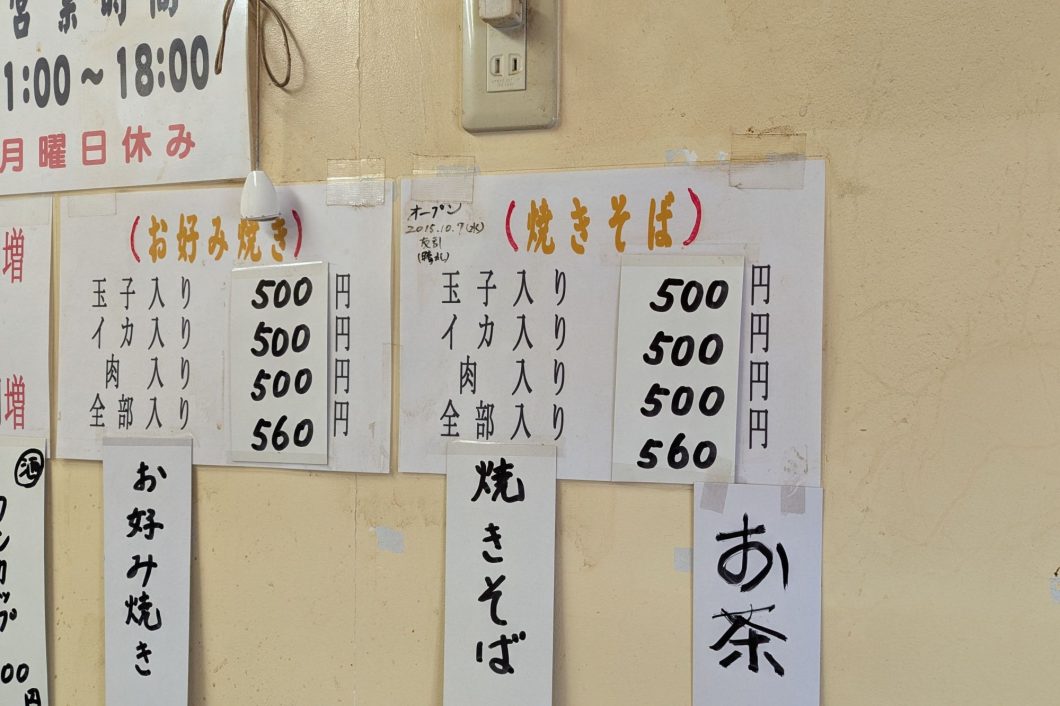 営業時間
1:00~18:00
月曜日休み
増
増
(お好み焼き)
玉子入り 500 円
イカ入り 500 円
肉 入り 500 円
全部入り 560 円
オープン
2015.10.7(水)
(焼きそば)
玉子入り 500 円
イカ入り 500 円
肉 入り 500 円
全部入り 560 円
酒
ワンカップ
00
円
お好み焼き
焼きそば
お茶